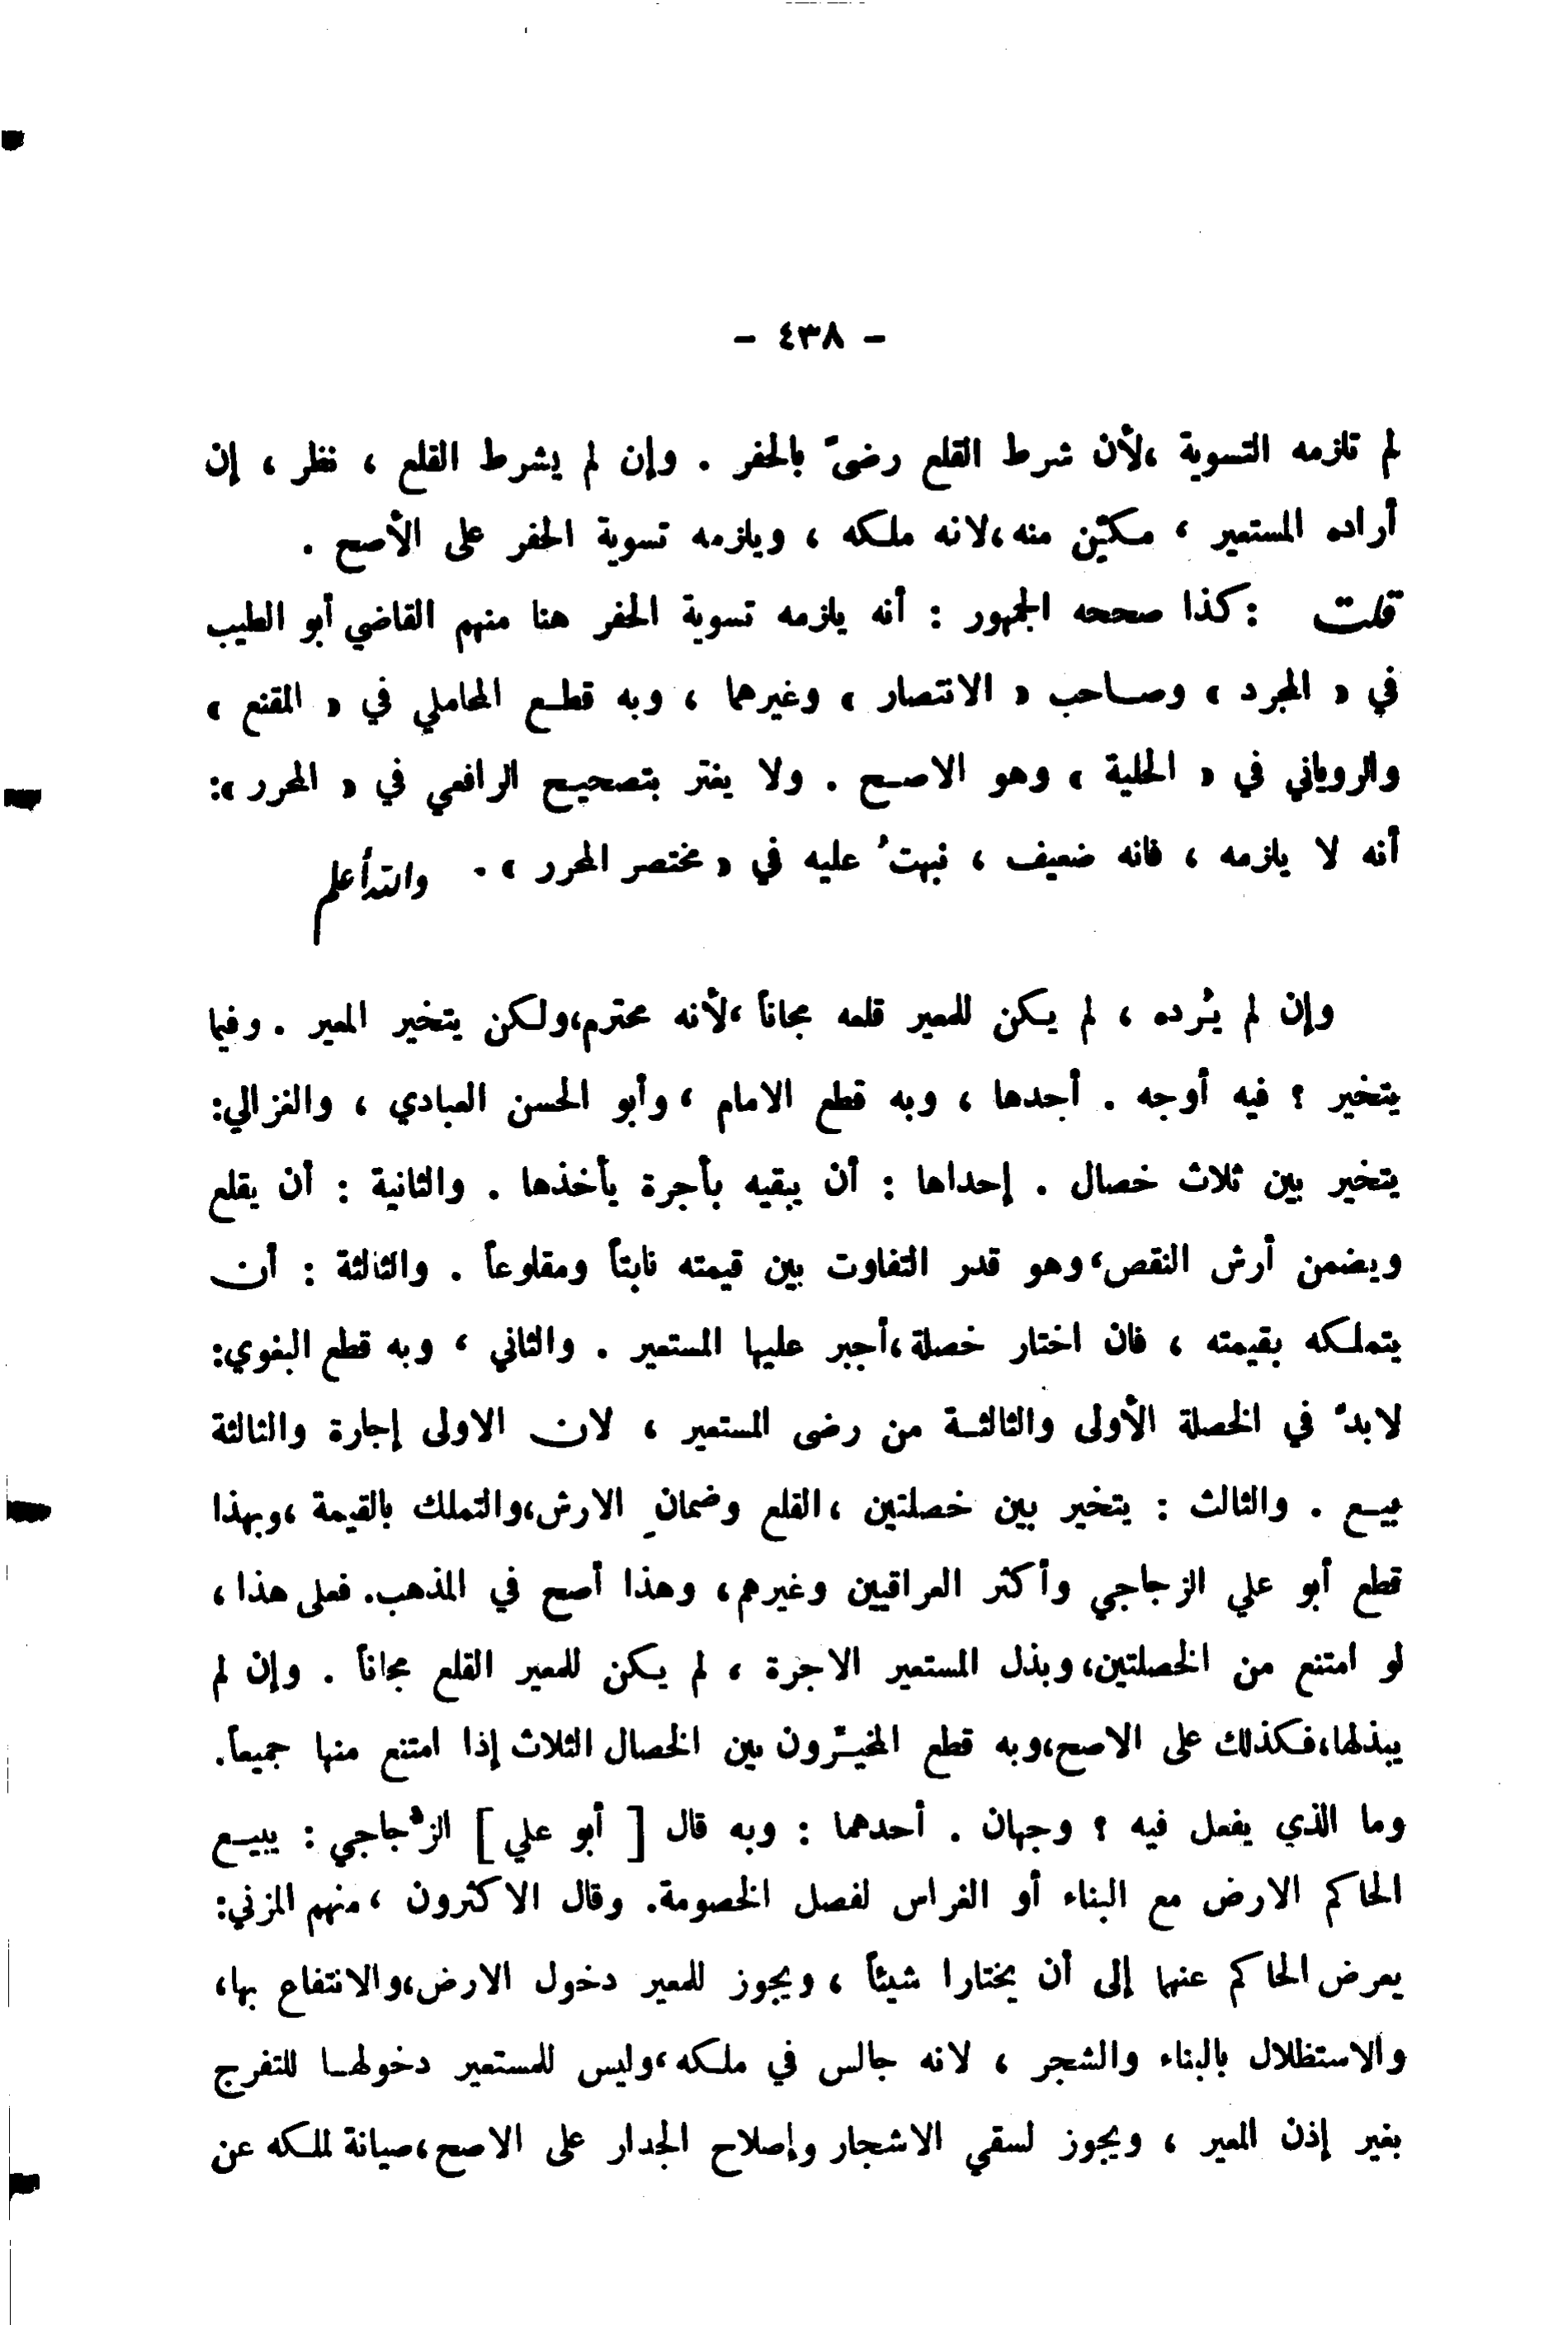 - ٤٣٨ -
لم تلزمه التسوية ،لأن شرط القلع رضىً بالحفر . وإن لم يشرط القلع ، نظر ، إن
أراده المستعير ، مكـّن منه،لانه ملـكه ، ويلزمه تسوية الحفر على الأصح .
قلت : كذا صححه الجمهور : أنه يلزمه تسوية الحفر هنا منهم القاضي أبو الطيب
في « المجرد » وصـاحب « الانتصار » وغيرهما ، وبه قطـع المحاملي في « المقنع »
والروياني في « الحلية » وهو الاصـح . ولا يغتر بتصحيـح الرافعي في « المحرر »:
أنه لا يلزمه ، فانه ضعيف ، نبهتُ عليه في « مختصر المحرر » . والله أعلم
وإن لم يُرده ، لم يـكن للمعير قلعه مجاناً ،لأنه محترم،ولـكن يتخير المعير . وفيما
يتخير ؟ فيه أوجه . أحدها ، وبه قطع الامام ، وأبو الحسن العبادي ، والغزالي:
يتخير بين ثلاث خصال . إحداها : أن يبقيه بأجرة يأخذها . والثانية : أن يقلع
ويضمن أرش النقص،وهو قدر التفاوت بين قيمته نابتاً ومقلوعاً . والثالثة : أن
يتملـكه بقيمته ، فان اختار خصلة،أجبر عليها المستعير . والثاني ، وبه قطع البغوي:
لابدّ في الخصلة الأولى والثالثـة من رضى المستعير ، لان الاولى إجارة والثالثة
بيـع . والثالث : يتخير بين خصلتين ،القلع وضمانِ الارش،والتملك بالقيمة ،وبهذا
قطع أبو علي الزجاجي وأكثر العراقيين وغيرهم، وهذا أصح في المذهب. فعلى هذا ،
لو امتنع من الخصلتين،وبذل المستعير الاجرة ، لم يـكن للمعير القلع مجاناً . وإن لم
يبذلها،فـكذلك على الاصح،وبه قطع المخيـّرون بين الخصال الثلاث إذا امتنع منها جميعاً.
وما الذي يفعل فيه ؟ وجهان . أحدهما : وبه قال [ أبو علي ] الزُّجاجي : يبيـع
الحاكم الارض مع البناء أو الغراس لفصل الخصومة. وقال الاكثرون ،منهم المزني:
يعرض الحاكم عنهما إلى أن يختارا شيئاً ، ويجوز للمعير دخول الارض،والانتفاع بها،
والاستظلال بالبناء والشجر ، لانه جالس في ملـكه،وليس للمستعير دخولهـا للتفرج
بغير إذن المعير ، ويجوز لسقي الاشجار وإصلاح الجدار على الاصح،صيانة لملـكه عن